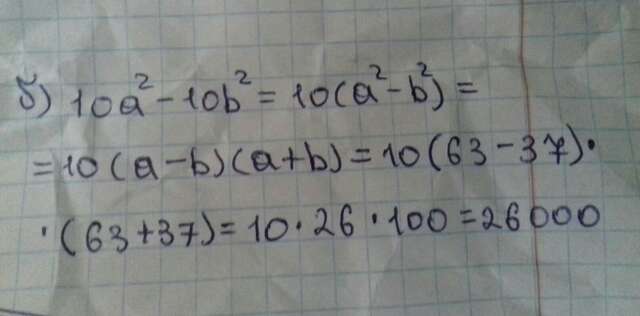 б) 10a² - 10b² = 10(a² - b²) =
= 10(a - b)(a + b) = 10(63 - 37)·
·(63 + 37) = 10 · 26 · 100 = 26000